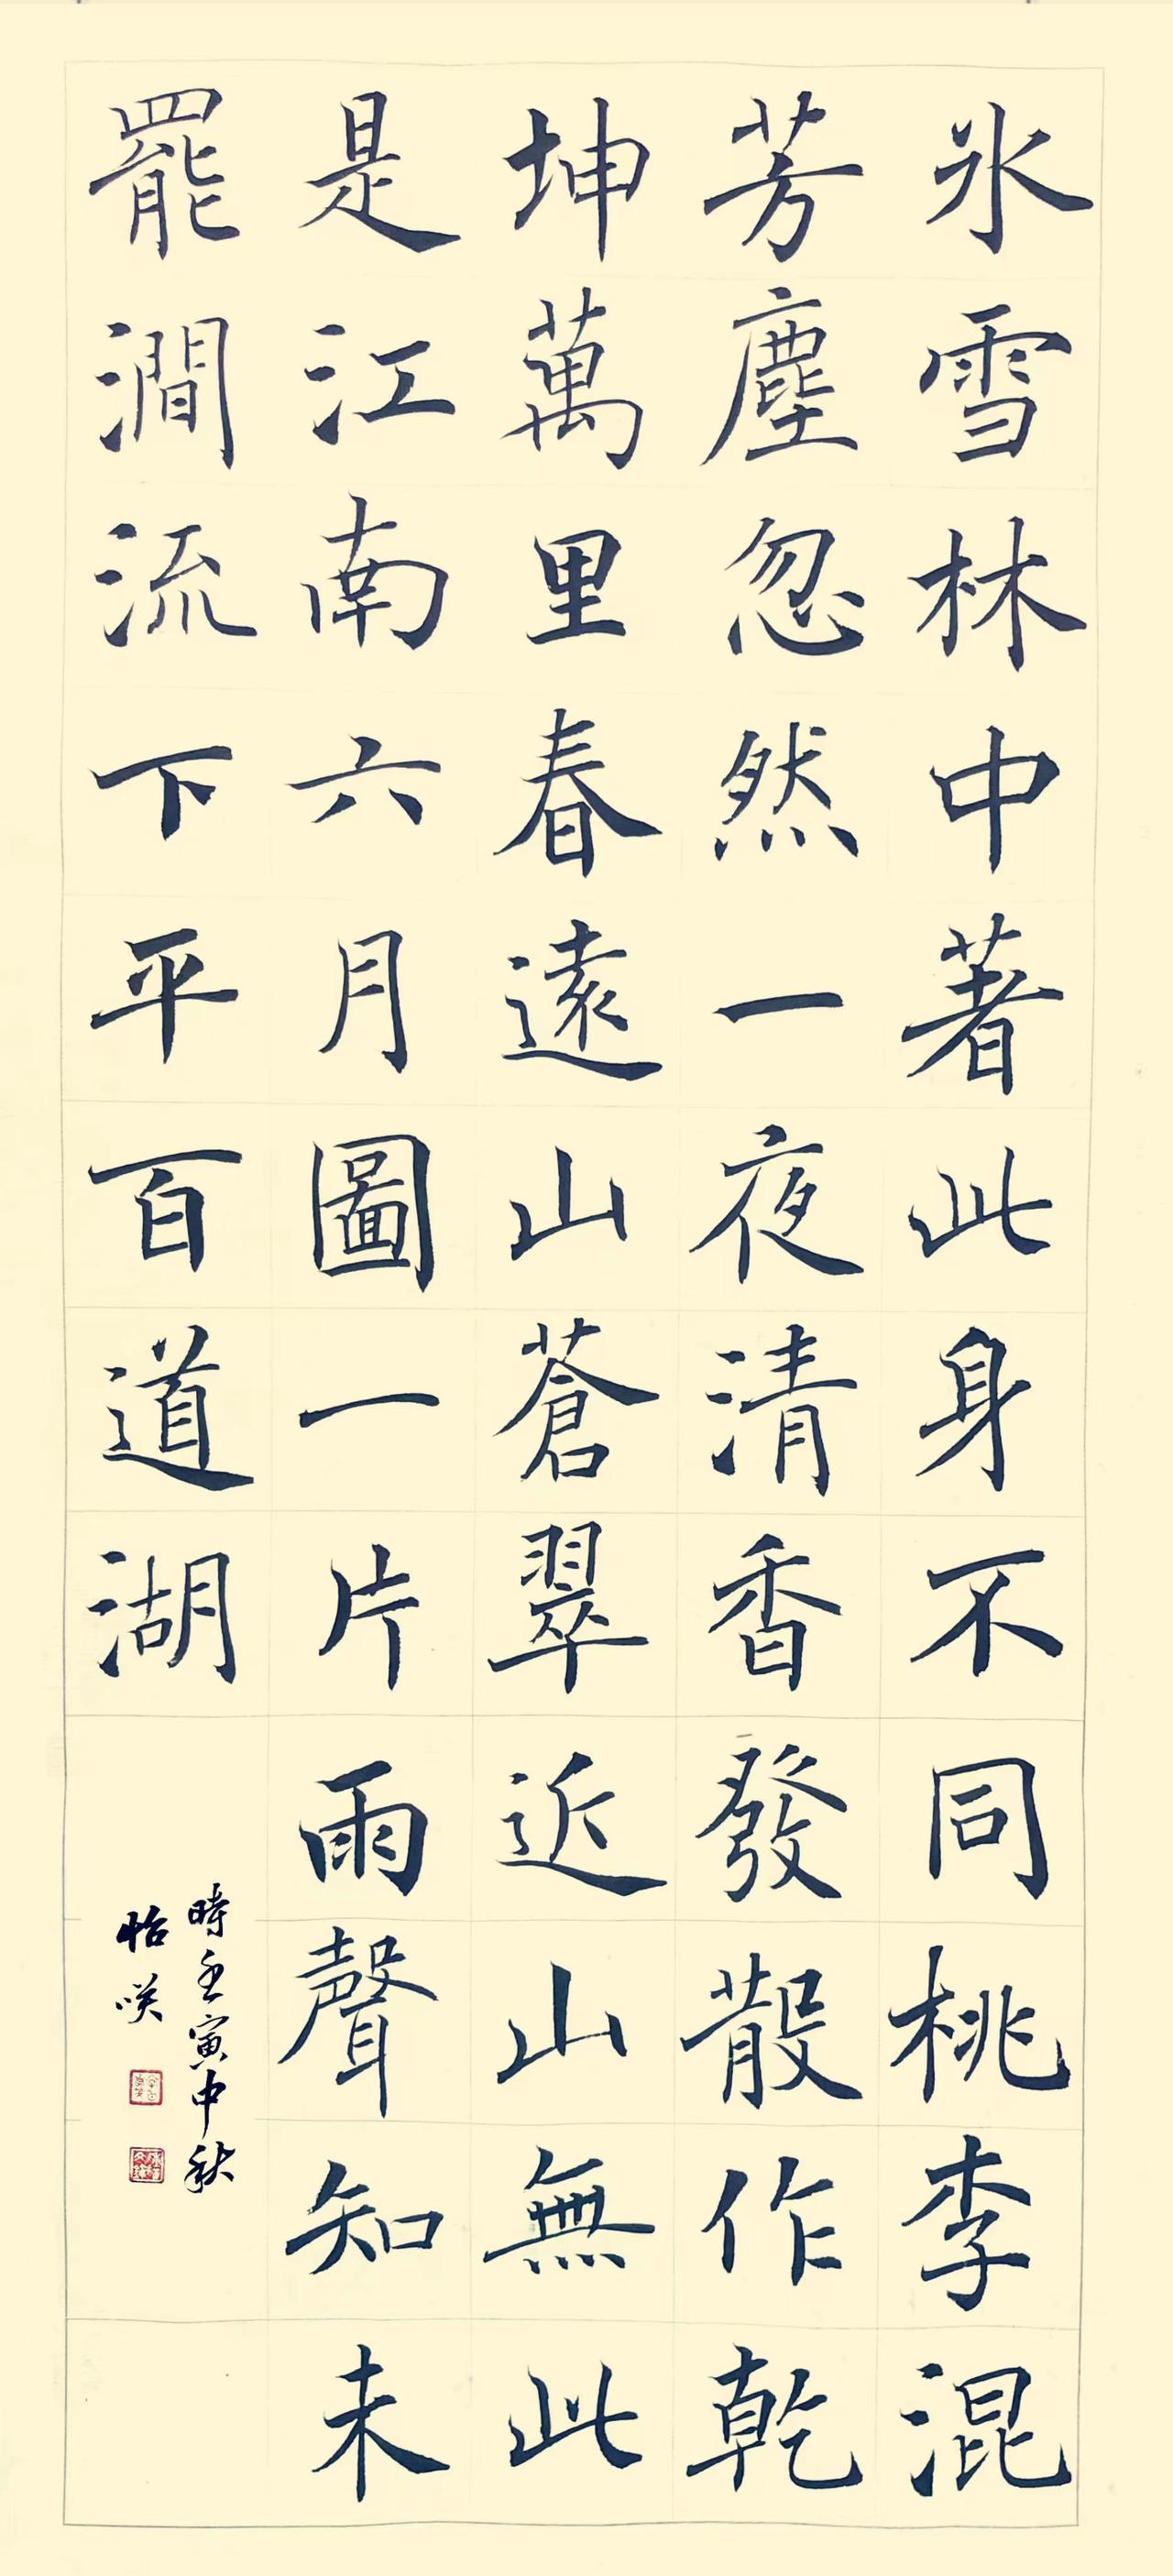 氷雪林中著此身不同桃李混
芳塵忽然一夜清香發散作乾
坤萬里春遠山蒼翠近山無此
是江南六月圖一片雨聲知未
罷澗流下平百道湖
時壬寅中秋
怡咲